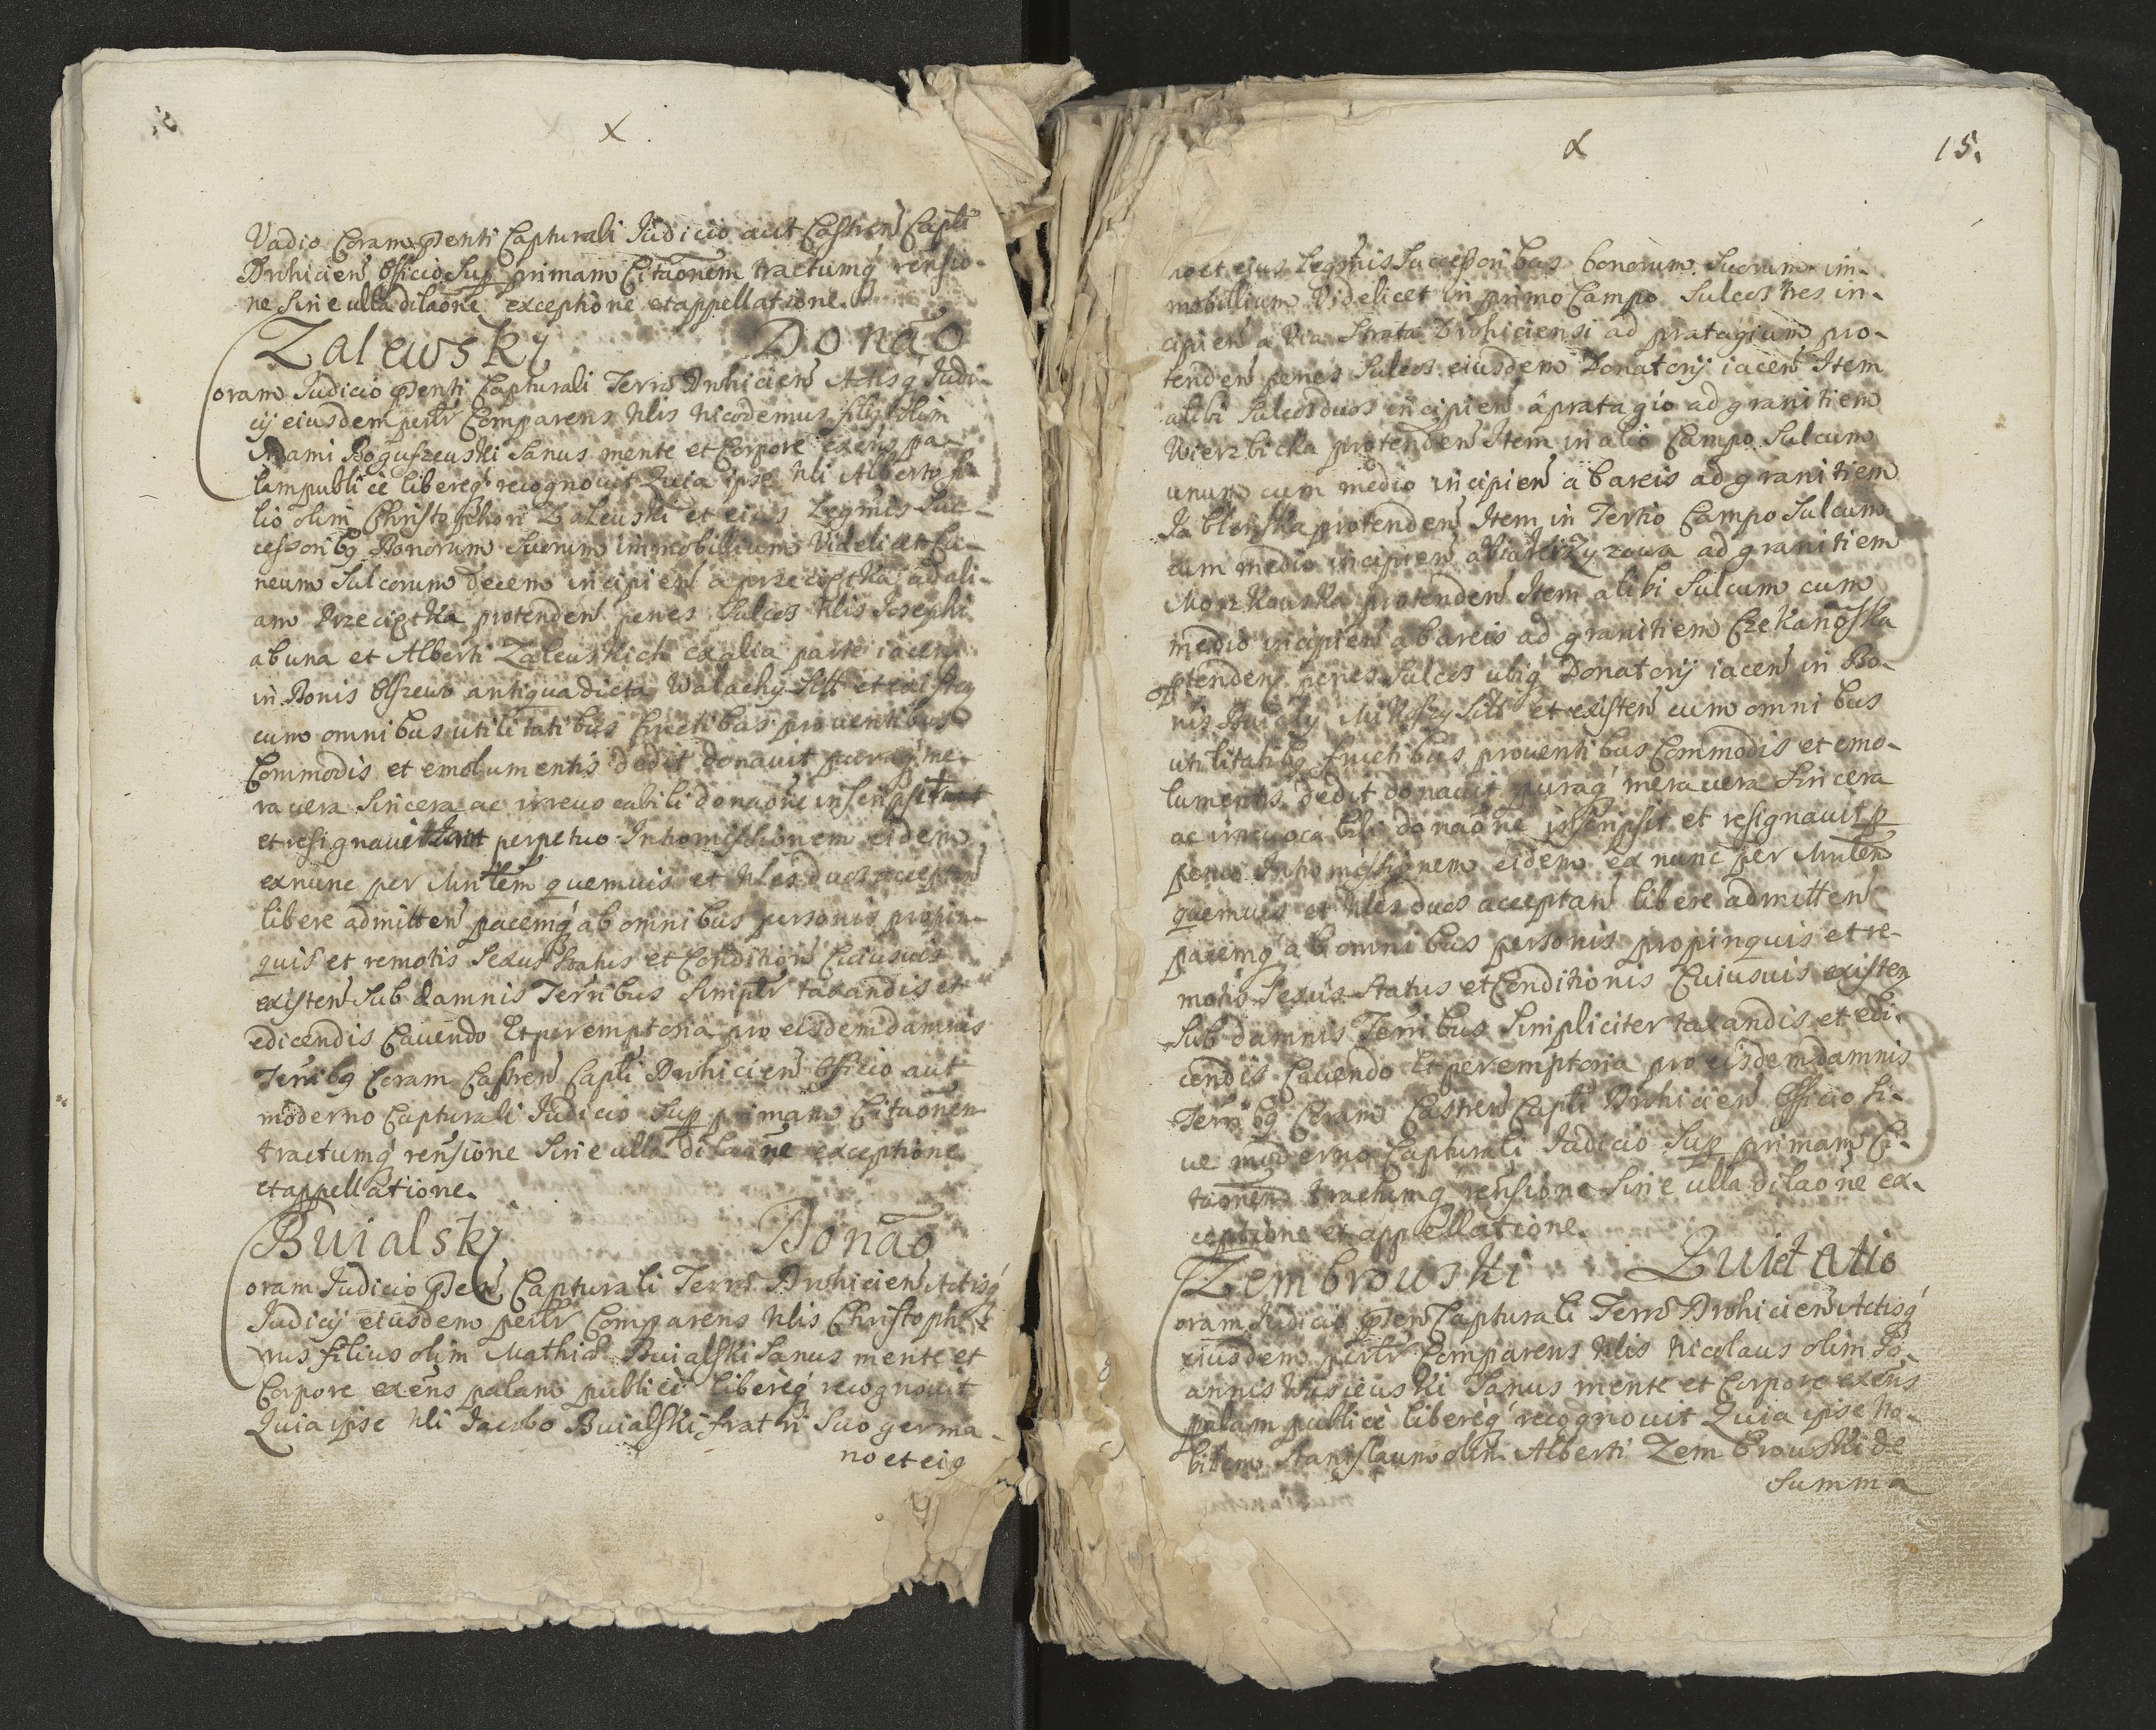 X
Vadio Coram Pnti Capturali Judicio aut Castren Capli
Drohicien Officio Sup primam Citaonem tractumq rensio-
ne Sine ulla dilaone exceptione et appellatione.
Zalewsky Donao
Coram Judicio Pnti Capturali Terrae Drohicien Actisq Judi-
cij eiusdem perlr Comparens Nlis Nicodemus filig olim
Adami Boguszewski Sanus mente et Corpore exens pa-
lam publice libereq recognovit Quia ipse Nli Alberto fi-
lio olim Christophori Zaleuski et eius Legmis Suc-
cessoribq Bonorum Suorum immobilium Videlicet Cu-
neum Sulcorum decem incipien a przeciptka ad ali-
am Przeciptka protenden penes Sulcos Nlis Josephi
ab una et Alberti Zaleuskich ex alia parte iacen
in Bonis Olszewo antiqua dicta Walachy Sitt et existen
cum omnibus utilitatibus fructibus proventibus
Commodis et emolumentis dedit donavit puraq me-
ra vera Sincera ac irrevocabili donaone inscripsit
et resignavit perpetuo Intromissionem eidem
ex nunc per Mnlem quemvis et Nles duos acceptan
libere admitten pacemq ab omnibus personis propin-
quis et remotis Sexus Status et Condition Cuiusvis
existen Sub damnis Terribus Simplr taxandis et
edicendis Cavendo Et peremptoria pro eisdem damnis
Terribq Coram Castren Capli Drohicien Officio aut
moderno Capturali Judicio Sup primam Citaonem
tractumq rensione Sine ulla dilaone exceptione
et appellatione.
Buialsky Donao
Coram Judicio Pnti Capturali Terrae Drohicien Actisq
Judicij eiusdem perlr Comparens Nlis Christopho-
rus filius olim Mathiae Buialski Sanus mente et
Corpore exens palam publice libereq recognovit
Quia ipse Nli Jacobo Buialski fratri Suo germa-
no et eig
X
15.
no et eius Legmis Successoribus bonorum Suorum im-
mobilium Videlicet in primo Campo Sulcos tres in-
cipien a Via Strata Drohiciensi ad pratagium pro-
tenden penes Sulcos eiusdem Donatorij iacen Item
alibi Sulcos duos incipien a pratagio ad granitiem
Wierzbicka protenden Item in alio Campo Sulcum
unum cum medio incipien ab areis ad granitiem
Jablonska protenden Item in Tertio Campo Sulcum
cum medio incipien a Via Krzyzowa ad granitiem
Moszkowska protenden Item alibi Sulcum cum
medio incipien ab areis ad granitiem Czekanoska
ptenden penes Sulcos ubiq Donatorij iacen in Bo-
nis Buialy Mikoszy Sitt et existen cum omnibus
utilitatibq fructibus proventibus Commodis et emo-
lumentis dedit donavit puraq mera vera Sincera
ac irrevocabili donaone inscripsit et resignavit p
petuo Intromissionem eidem ex nunc per Mnlem
quemvis et Nles duos acceptan libere admitten
pacemq ab omnibus personis propinquis et re-
motis Sexus Status et Conditionis Cuiusvis existen
Sub damnis Terribus Simpliciter taxandis et edi-
cendis Cavendo Et peremptoria pro eisdem damnis
Terribq Coram Castren Capli Drohicien Officio Si-
ve moderno Capturali Judicio Sup primam Ci-
taonem tractumq rensione Sine ulla dilaone ex-
ceptione et appellatione.
Zembrouski Quietatio
Coram Judicio Pnti Capturali Terrae Drohicien Actisq
eiusdem perlr Comparens Nlis Nicolaus olim Jo-
annis Sanus mente et Corpore exens
palam publice libereq recognovit Quia ipse No-
bilem Stanislaum olim Alberti Zembrouski de
Summa